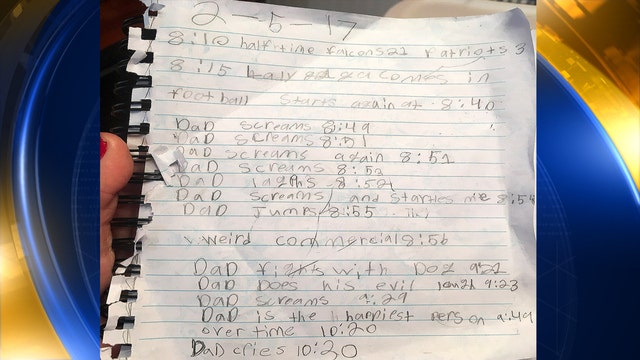 2-5-17
8:10 halftime falcons 21 Patriots 3
8:15 Lady gaga comes in
football starts again at 8:40
DaD screams 8:49
DaD screams 8:51
DaD screams again 8:51
DaD screams 8:52
DaD laghs 8:52
DaD screams and startles me 8:54
DaD Jumps 8:55
weird commercial 8:56
DaD fights with Dog 9:21
DaD Does his evil 9:23
DaD screams 9:29
DaD is the happiest person 9:49
over time 10:20
DaD cries 10:20